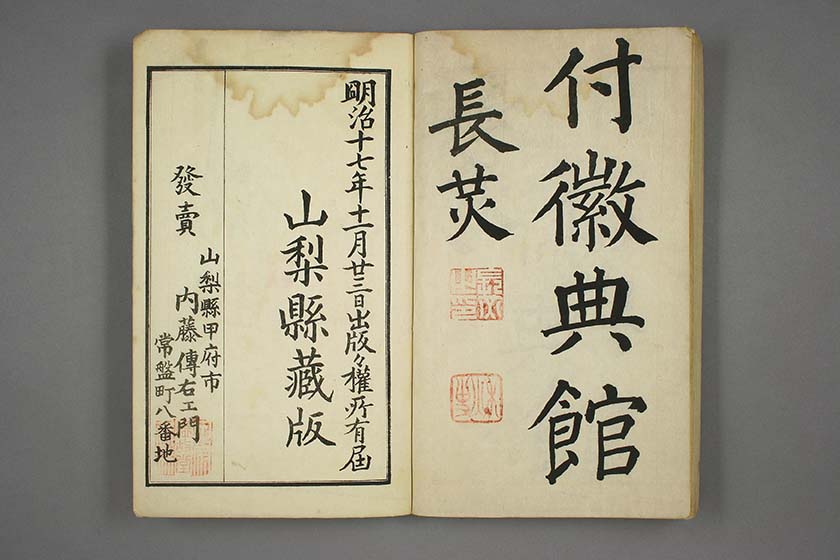 付徽典館
長炗
明治十七年十一月廿三日出版々權所有届
山梨縣藏版
發賣
山梨縣甲府市
内藤傳右エ門
常盤町八番地